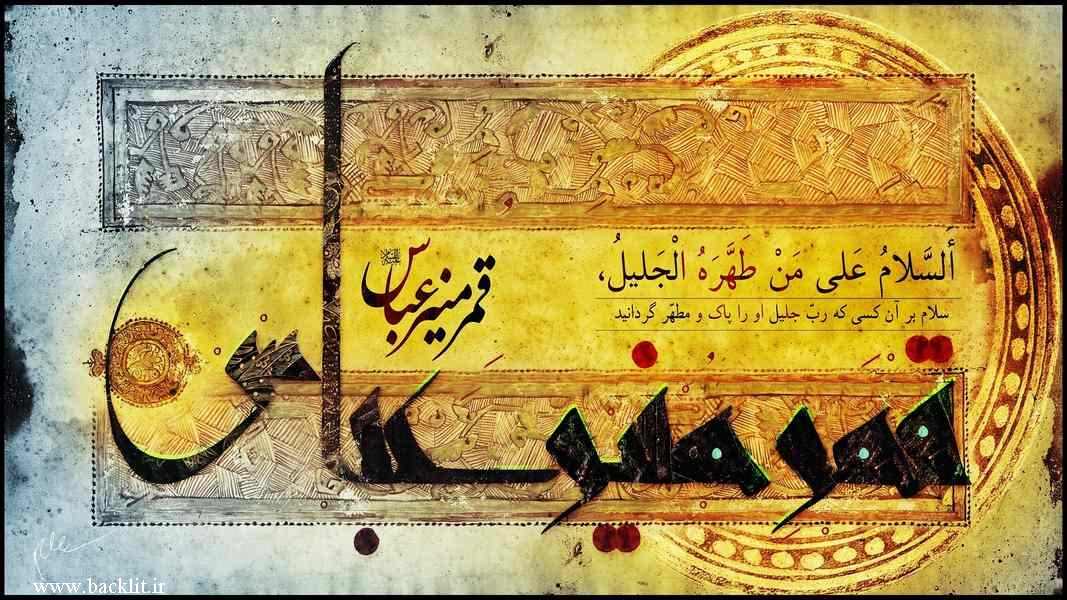 اَلسَّلامُ عَلی مَنْ طَهَّرَهُ الْجَلیلُ،
سلام بر آن کسی که ربّ جلیل او را پاک و مطهّر گردانید
قمر منیر عباس
قمر منیر عباس
www.backlit.ir